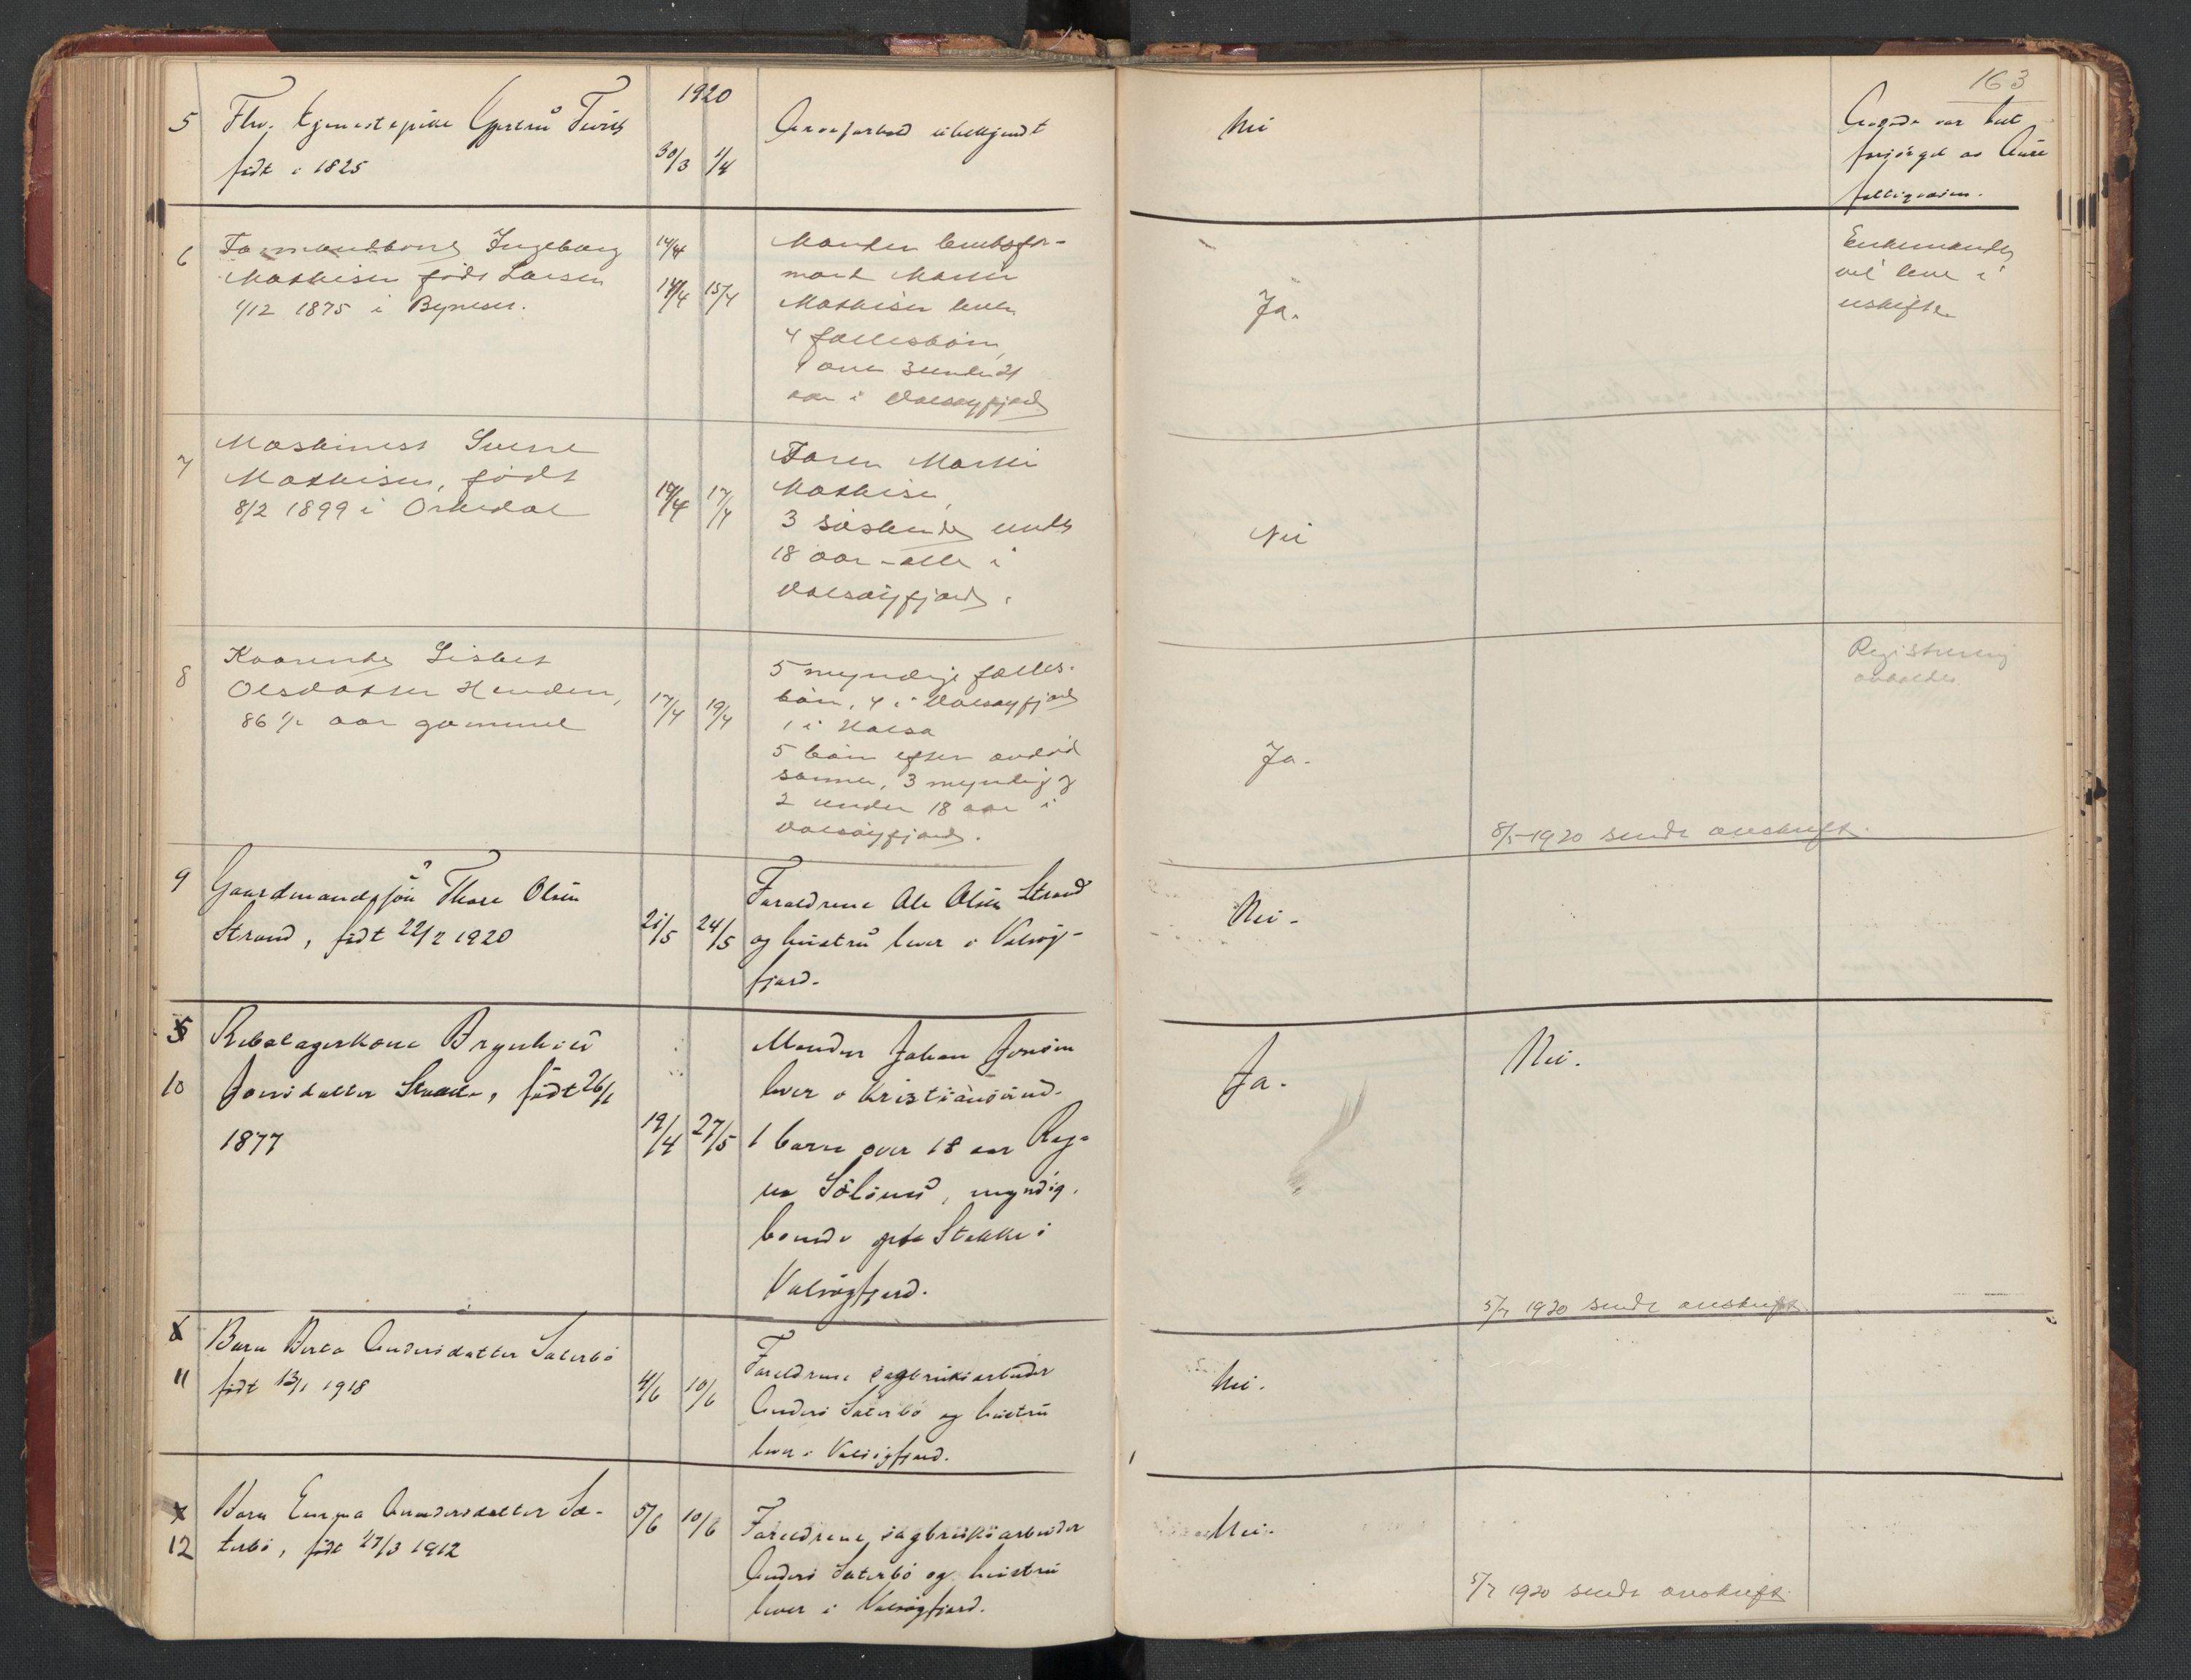 163
1920
5 Fhv. tjenestepike Gjertru
født i 1825
30/3 1/4
ubekjendt
Nei
var helt
forsørget av Aure
fattigvæsen.
6 Ingeborg
Mathisen født Larsen
1/12 1875 i Byneset.
14/4
14/4 15/4
Manden
Martin
Mathisen lever
4 fællesbørn,
1 over 3 under 21
aar i Valsøyfjord
Ja.
Enkemanden
vil leve i
uskifte
7 Maskinist Sverre
Mathisen, født
8/2 1899 i Orkedal
14/4 17/4
Faren Martin
Mathisen,
3 søskende under
18 aar - alle i
Valsøyfjord.
Nei
8 Kaarenke Lisbet
Olsdatter Henden,
86 1/2 aar gammel
17/4 19/4
5 myndige fælles-
børn, 4 i Valsøyfjord
1 i Halsa
5 børn efter avdød
sønner, 3 myndig og
2 under 18 aar i
Valsøyfjord.
Ja.
Registrering
avholdes
8/5-1920 sendt avskrift.
9 Gaardmandssøn Thore Olsen
Strand, født 22/2 1920
21/5 24/5
Foreldrene Ole Olsen Strand
og hustru lever i Valsøy-
fjord.
Nei-
5
10 Brynhild
Jonsdatter født 26/1
1877
19/4 27/5
Manden Johan Jonsen
lever i Kristiansund.
1 barn over 18 aar Rag-
na myndig,
Stokke i
Valsøyfjord.
Ja.
Nei.
5/7 1920 sendt avskrift
6
11 Barn Berta Andersdatter Sæterbø
født 13/1 1918
4/6 10/6
Foreldrene sagbruksarbeider
Anders Sæterbø og hustru
lever i Valsøyfjord.
Nei.
7
12 Barn Emma Andersdatter Sæ-
terbø, født 27/3 1912
5/6 10/6
Foreldrene, sagbruksarbeider
Anders Sæterbø og hustru
lever i Valsøyfjord.
Nei.
5/7 1920 sendt avskrift.